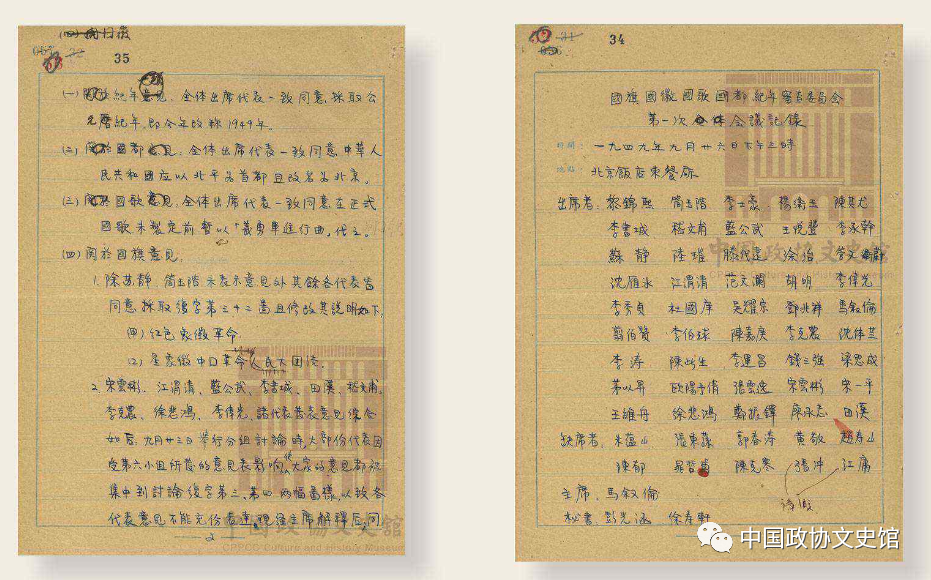 35
(一) 紀年意見，全体出席代表一致同意，採取公
元紀年，即今年改稱1949年。
(二) 國都意見，全体出席代表一致同意，中華人
民共和國應以北平為首都且改名為北京。
(三) 國歌意見，全体出席代表一致同意在正式
國歌未製定前暫以「義勇軍進行曲」代之。
(四) 關於國旗意見。
1. 除蘇靜 簡玉階未表示意見外其餘各代表皆
同意採取復字第三十二圖且修改其說明如下
(甲) 紅色象徵革命
(乙) 象徵中国革命人民大团结
2. 宋雲彬、江渭清、藍公武、李書城、田漢、嵇文甫、
李克農、徐悲鴻、李偉光、諸代表
九月廿三日舉行分組討論時，大部份代表因
受第六小组所發的意見表影响，大家的意見都
集中到討論復字第三、第四 兩幅圖樣，以致各
代表意見不能充份
主席解釋
2
34
國旗國徽國歌國都紀年審查委員会
第一次全体会議記錄
時間：一九四九年九月廿六日下午三時
地點 北京飯店東餐廳
出席者：黎錦熙 簡玉階 李士豪 楊衛玉 陳其尤
李書城 嵇文甫 藍公武 李承幹
蘇靜 陸璀
沈雁冰 江渭清 范文瀾 胡明 李偉光
李秀真 杜國庠 吳耀宗 鄧兆祥 馬叙倫
翦伯贊 李伯球 陳嘉庚 李克農 沈体兰
李濤 陳此生 李運昌 錢三強 梁思成
茅以昇 歐陽予倩 張雲逸 宋雲彬 宋一平
王維舟 徐悲鴻 鄭振鐸 廖承志 田漢
缺席者：朱蘊山 張東蓀 郭春濤 黃敬 趙寿山
陳郁 陳克寒 張冲 江庸
主席：馬叙倫
秘書：彭光涵 徐寿軒
中国政协文史馆
CPPCC Culture and History Museum
中国政协文史馆